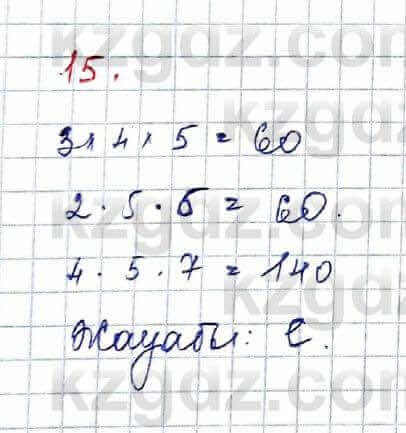 15.
3 · 4 · 5 = 60
2 · 5 · 6 = 60.
4 · 5 · 7 = 140
Жауабы: С.
kzgdz.com